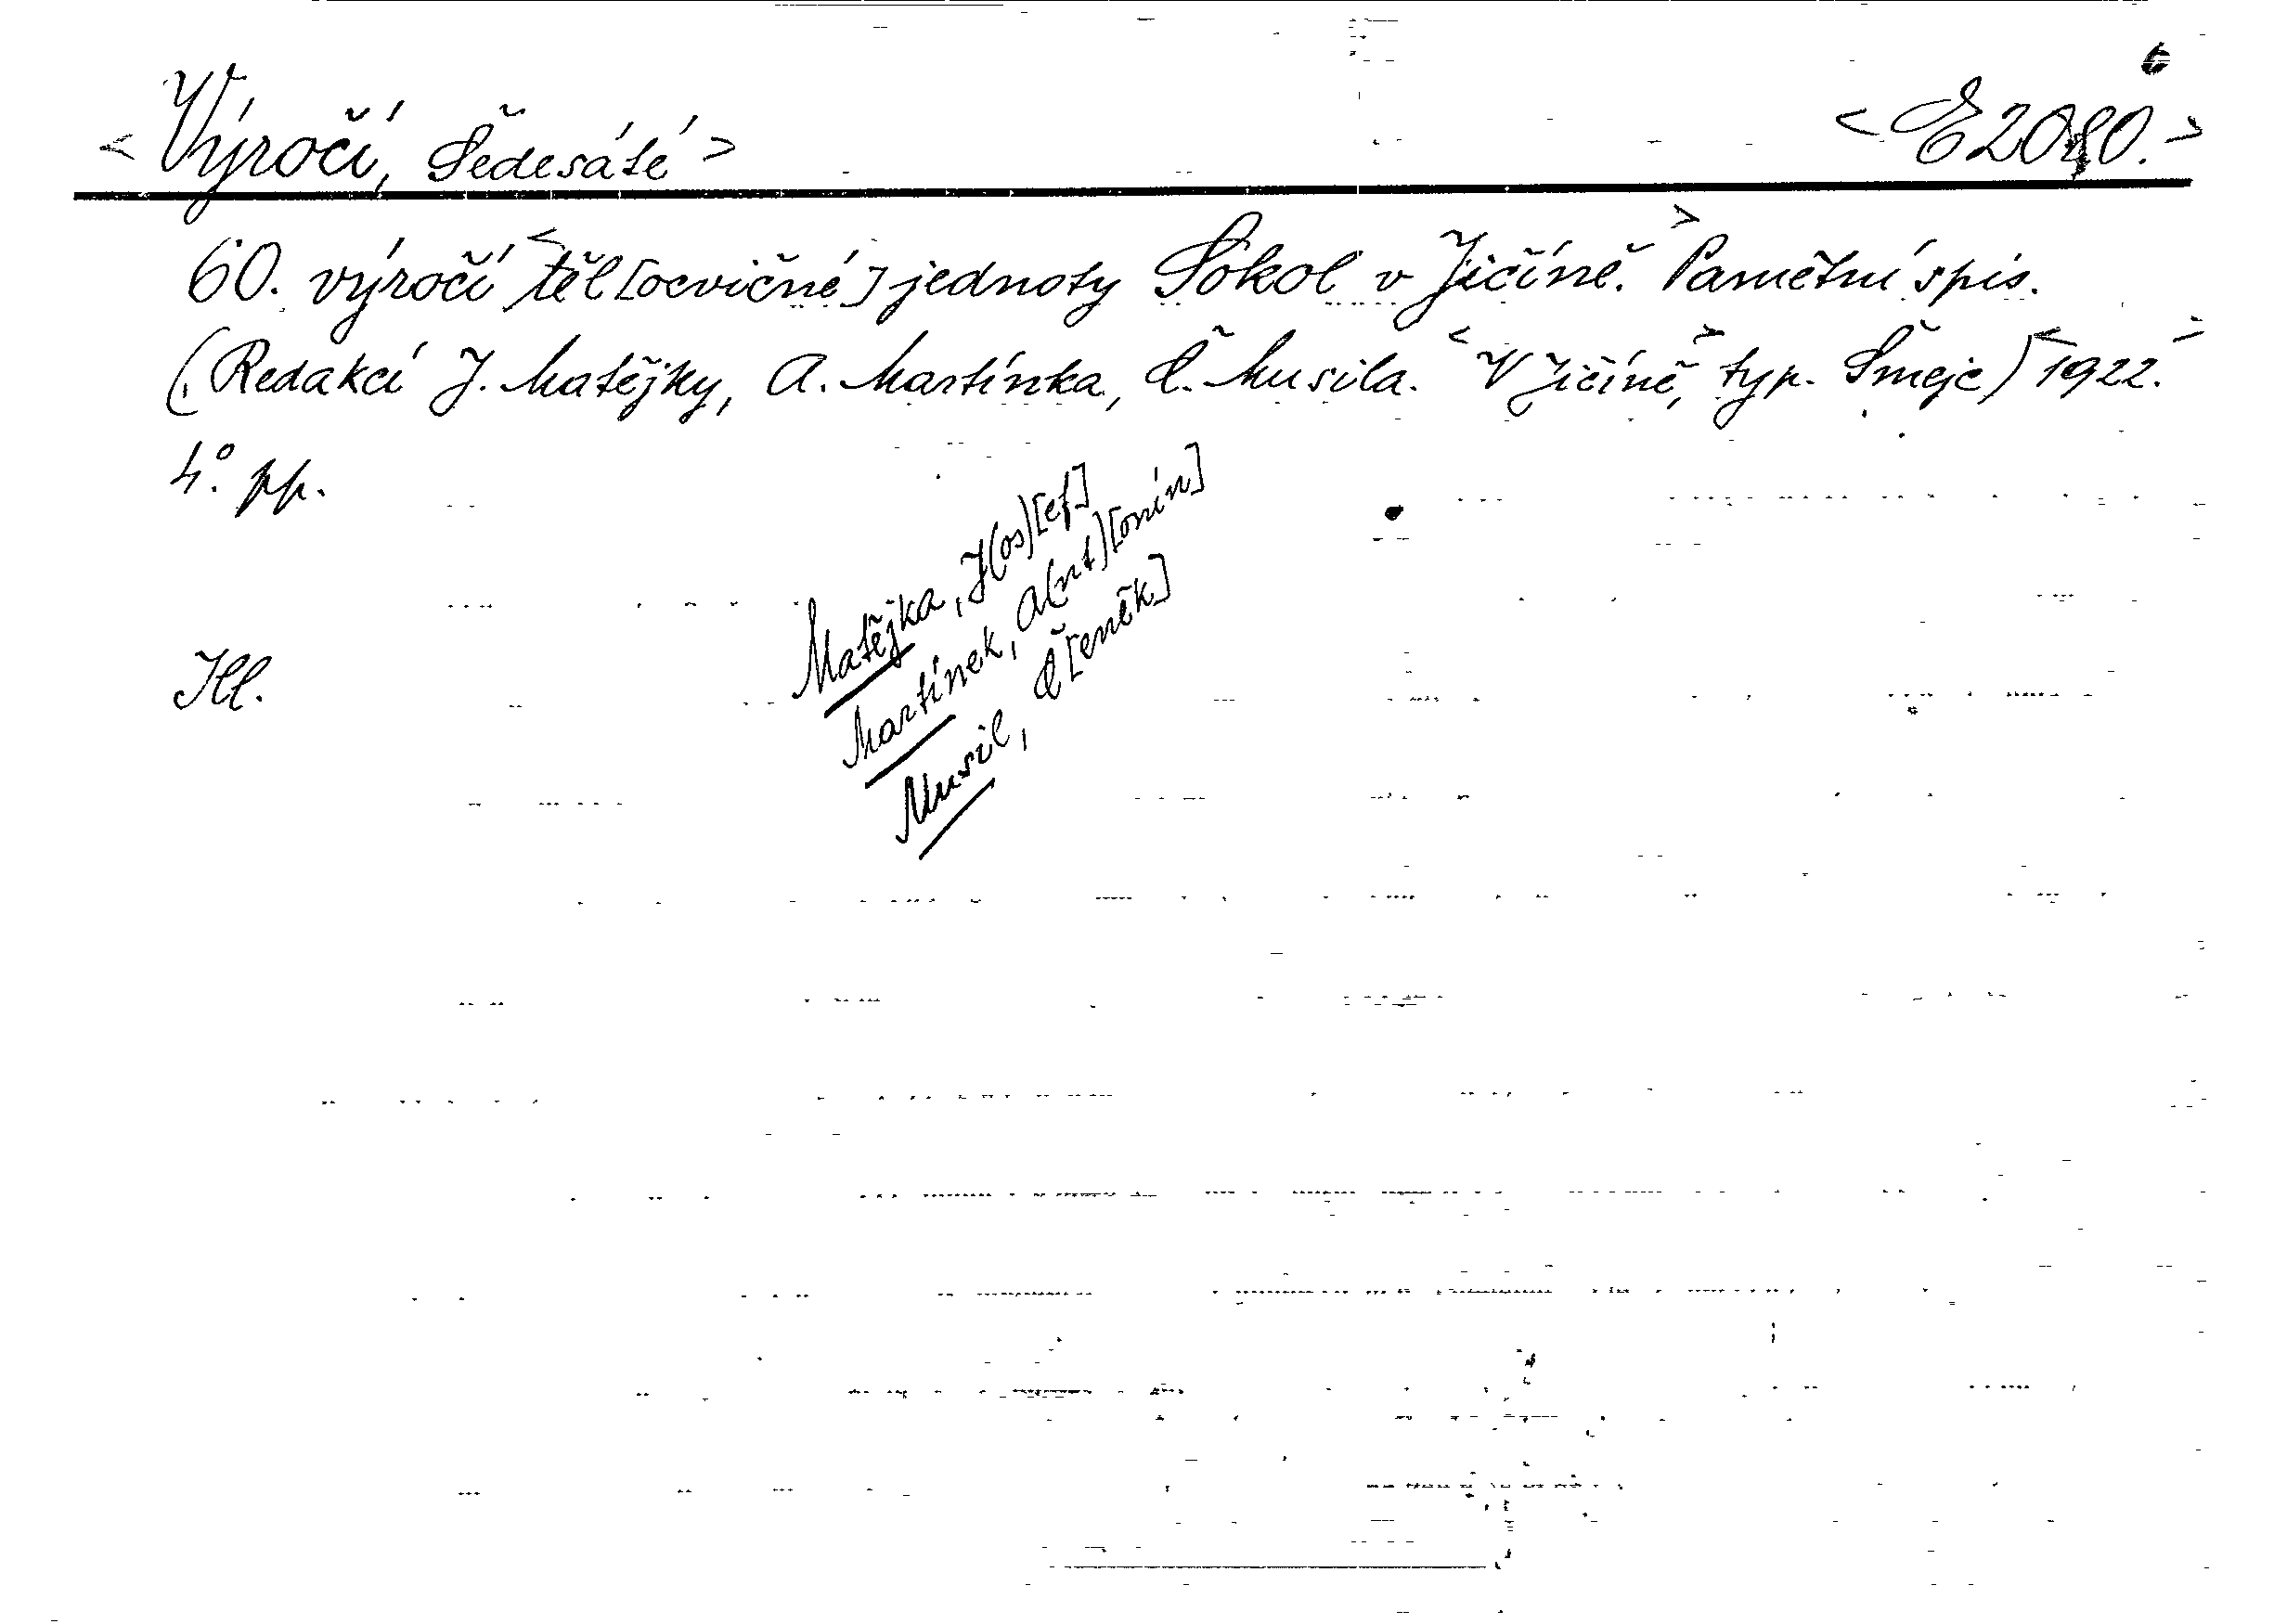 6
<Výročí, Šedesáté> <E 2080.>
60. výročí <těl[ocvičné] jednoty Sokol v Jičíně.> Pamětní spis.
(Redakcí J. Matějky, A. Martínka, Č. Musila. <V Jičíně,> typ. Šmejc) <1922.>
4.° pp.
Matějka, J(os)[ef]
Martínek, A(nt)[onín]
Musil, Č[eněk]
Hl.